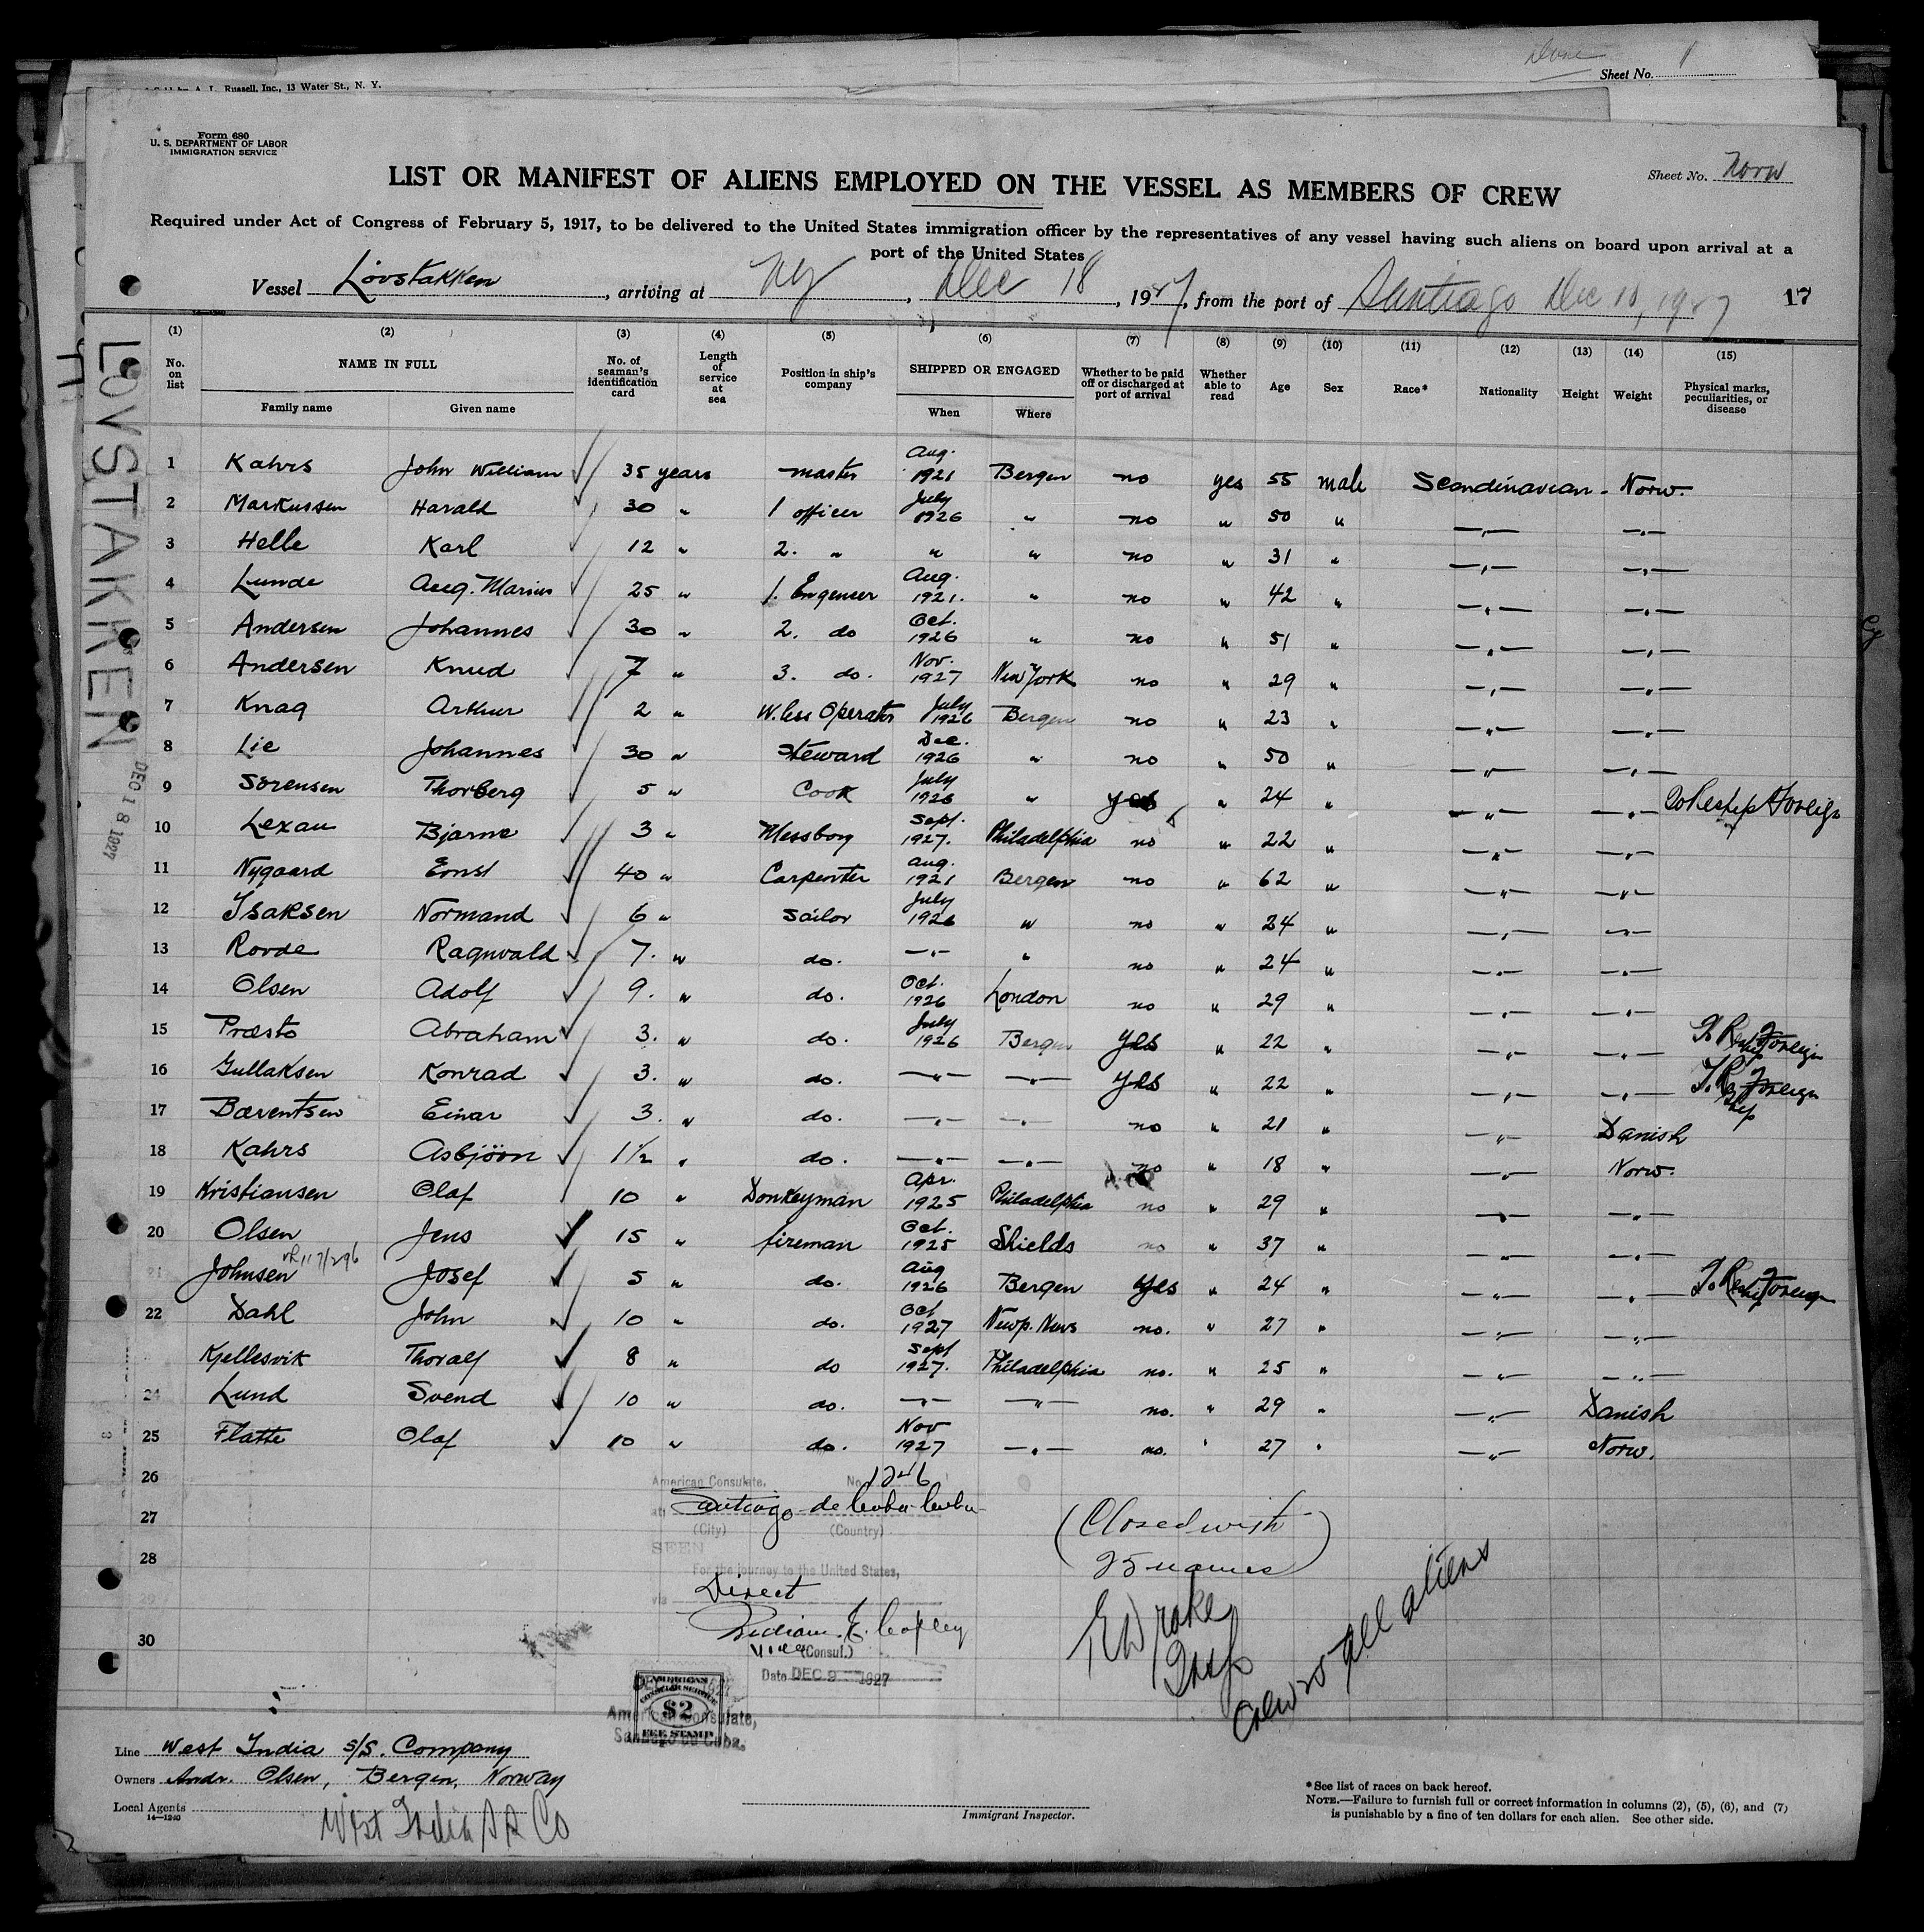 Done
Sheet No. 1
A. L. Russell, Inc., 13 Water St., N. Y.
Form 680
U. S. DEPARTMENT OF LABOR
IMMIGRATION SERVICE
Sheet No. Norw
LIST OR MANIFEST OF ALIENS EMPLOYED ON THE VESSEL AS MEMBERS OF CREW
Required under Act of Congress of February 5, 1917, to be delivered to the United States immigration officer by the representatives of any vessel having such aliens on board upon arrival at a
port of the United States
Vessel Lövstakken, arriving at NY, Dec 18, 1927, from the port of Santiago Dec 10, 1927 17
(1) (2) (3) (4) (5) (6) (7) (8) (9) (10) (11) (12) (13) (14) (15)
No. on list NAME IN FULL Family name Given name No. of seaman's identification card Length of service at sea Position in ship's company SHIPPED OR ENGAGED When Where Whether to be paid off or discharged at port of arrival Whether able to read Age Sex Race* Nationality Height Weight Physical marks, peculiarities, or disease
LOVSTAKKEN
DEC 18 1927
1 Kahrs John William 35 years master Aug. 1921 Bergen no yes 55 male Scandinavian - Norw.
2 Markussen Harald 30 " 1 officer July 1926 " no " 50 " —"— —"—
3 Helle Karl 12 " 2. " " " no " 31 " —"— —"—
4 Lunde Aug. Marius 25 " 1. Engeneer Aug. 1921. " no " 42 " —"— —"—
5 Andersen Johannes 30 " 2. do Oct. 1926 " no " 51 " —"— —"—
6 Andersen Knud 7 " 3. do. Nov. 1927 New York no " 29 " —"— —"—
7 Knag Arthur 2 " W.less Operator July 1926 Bergen no " 23 " —"— —"—
8 Lie Johannes 30 " Steward Dec. 1926 " no " 50 " —"— —"—
9 Sorensen Thorberg 5 " Cook July 1926 " yes " 24 " —"— —"— To Reship Foreign
10 Lexau Bjarne 3 " Messboy Sept. 1927. Philadelphia no " 22 " —"— —"—
11 Nygaard Ernst 40 " Carpenter Aug. 1921 Bergen no " 62 " —"— —"—
12 Isaksen Normand 6 " Sailor July 1926 " no " 24 " —"— —"—
13 Rovde Ragnvald 7. " do. —"— " no " 24 " —"— —"—
14 Olsen Adolf 9. " do. Oct. 1926 London no " 29 " —"— —"—
15 Præsto Abraham 3. " do. July 1926 Bergen yes " 22 " —"— —"— To Reship Foreign
16 Gullaksen Konrad 3. " do. —"— —"— yes " 22 " —"— —"— To Re Foreign ship
17 Bærentsen Einar 3. " do. —"— —"— no " 21 " —"— Danish
18 Kahrs Asbjörn 1½ " do. —"— —"— no " 18 " —"— Norw.
19 Kristiansen Olaf 10 " Donkeyman Apr. 1925 Philadelphia no " 29 " —"— —"—
20 Olsen Jens 15 " fireman Oct. 1925 Shields no " 37 " —"— —"—
21 Johnsen Josef 5 " do. Aug 1926 Bergen yes " 24 " —"— —"— To Reship Foreign
22 Dahl John 10 " do. Oct 1927 Newp. News no. " 27 " —"— —"—
Kjellesvik Thoralf 8 " do Sept 1927. Philadelphia no. " 25 " —"— —"—
24 Lund Svend 10 " do. —"— —"— no. " 29 " —"— Danish
25 Flatte Olaf 10 " do. Nov 1927 —"— no. " 27 " —"— Norw.
26
27
28
29
30
American Consulate, No. 1246
at Santiago de Cuba Cuba
(City) (Country)
SEEN
For the journey to the United States,
via Direct
Vice (Consul.)
Date DEC 9 1927
(Closed with
25 names)
E Drake
Insp
Crew no all aliens
AMERICAN
CONSULAR SERVICE
$2
FEE STAMP
American Consulate,
Santiago de Cuba.
Line West India S/S. Company
Owners Andr. Olsen, Bergen, Norway
Local Agents
14—1240
West India S S Co
Immigrant Inspector.
*See list of races on back hereof.
NOTE.—Failure to furnish full or correct information in columns (2), (5), (6), and (7)
is punishable by a fine of ten dollars for each alien. See other side.